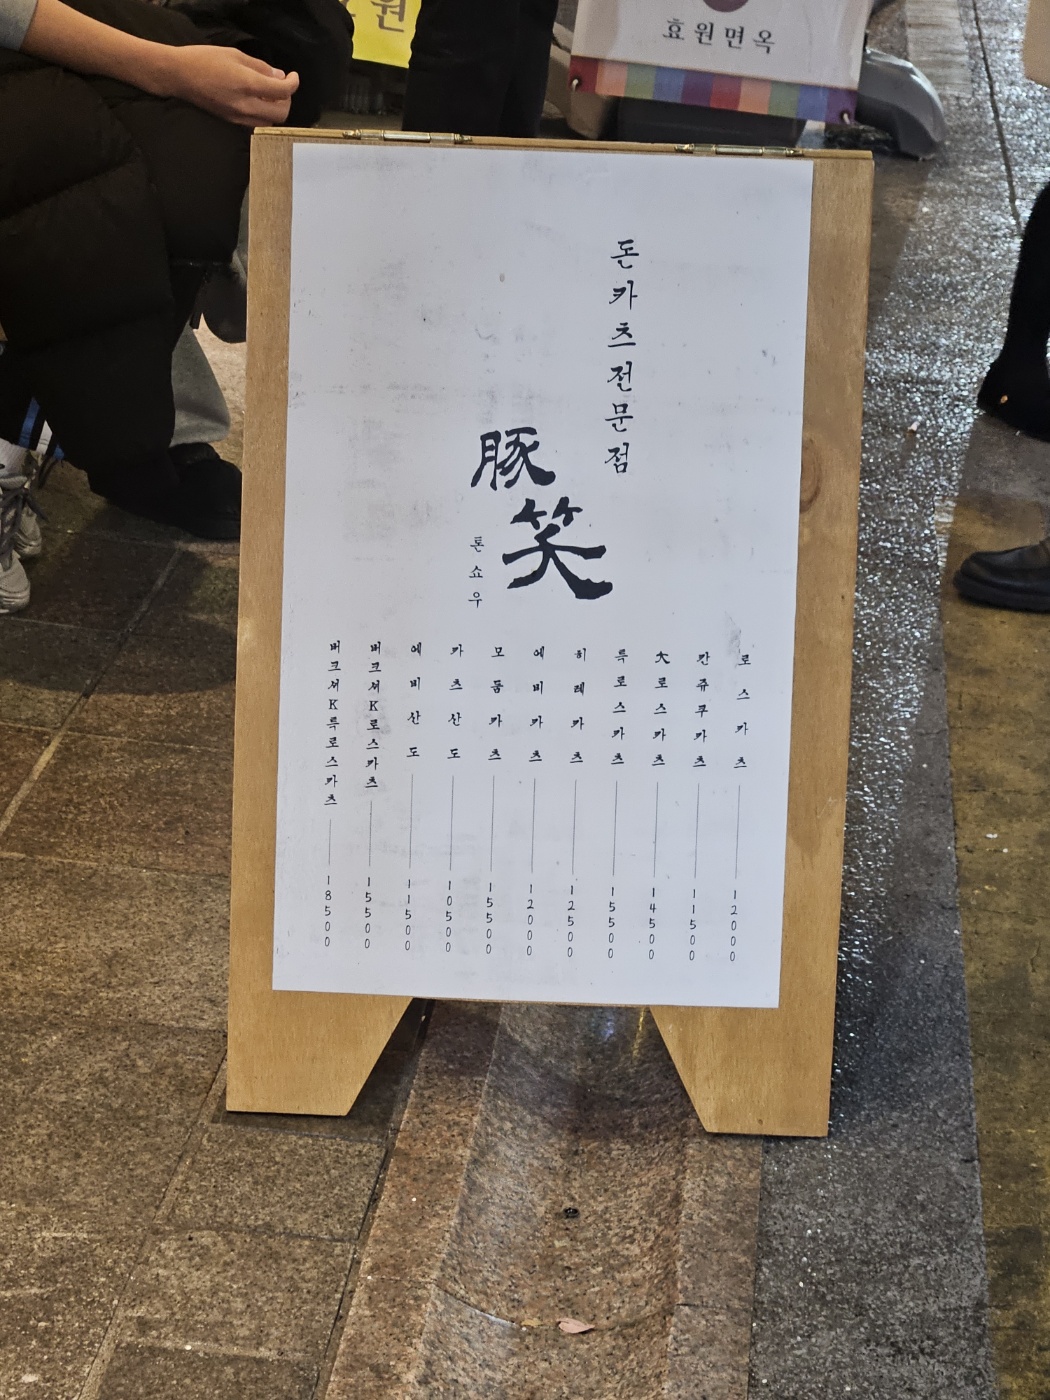 원
효원면옥
돈카츠전문점
豚笑
톤쇼우
로스카츠 12000
칸쥬쿠카츠 11500
大로스카츠 14500
특로스카츠 15500
히레카츠 12500
에비카츠 12000
모둠카츠 15500
카츠산도 10500
에비산도 11500
버크셔K로스카츠 15500
버크셔K특로스카츠 18500